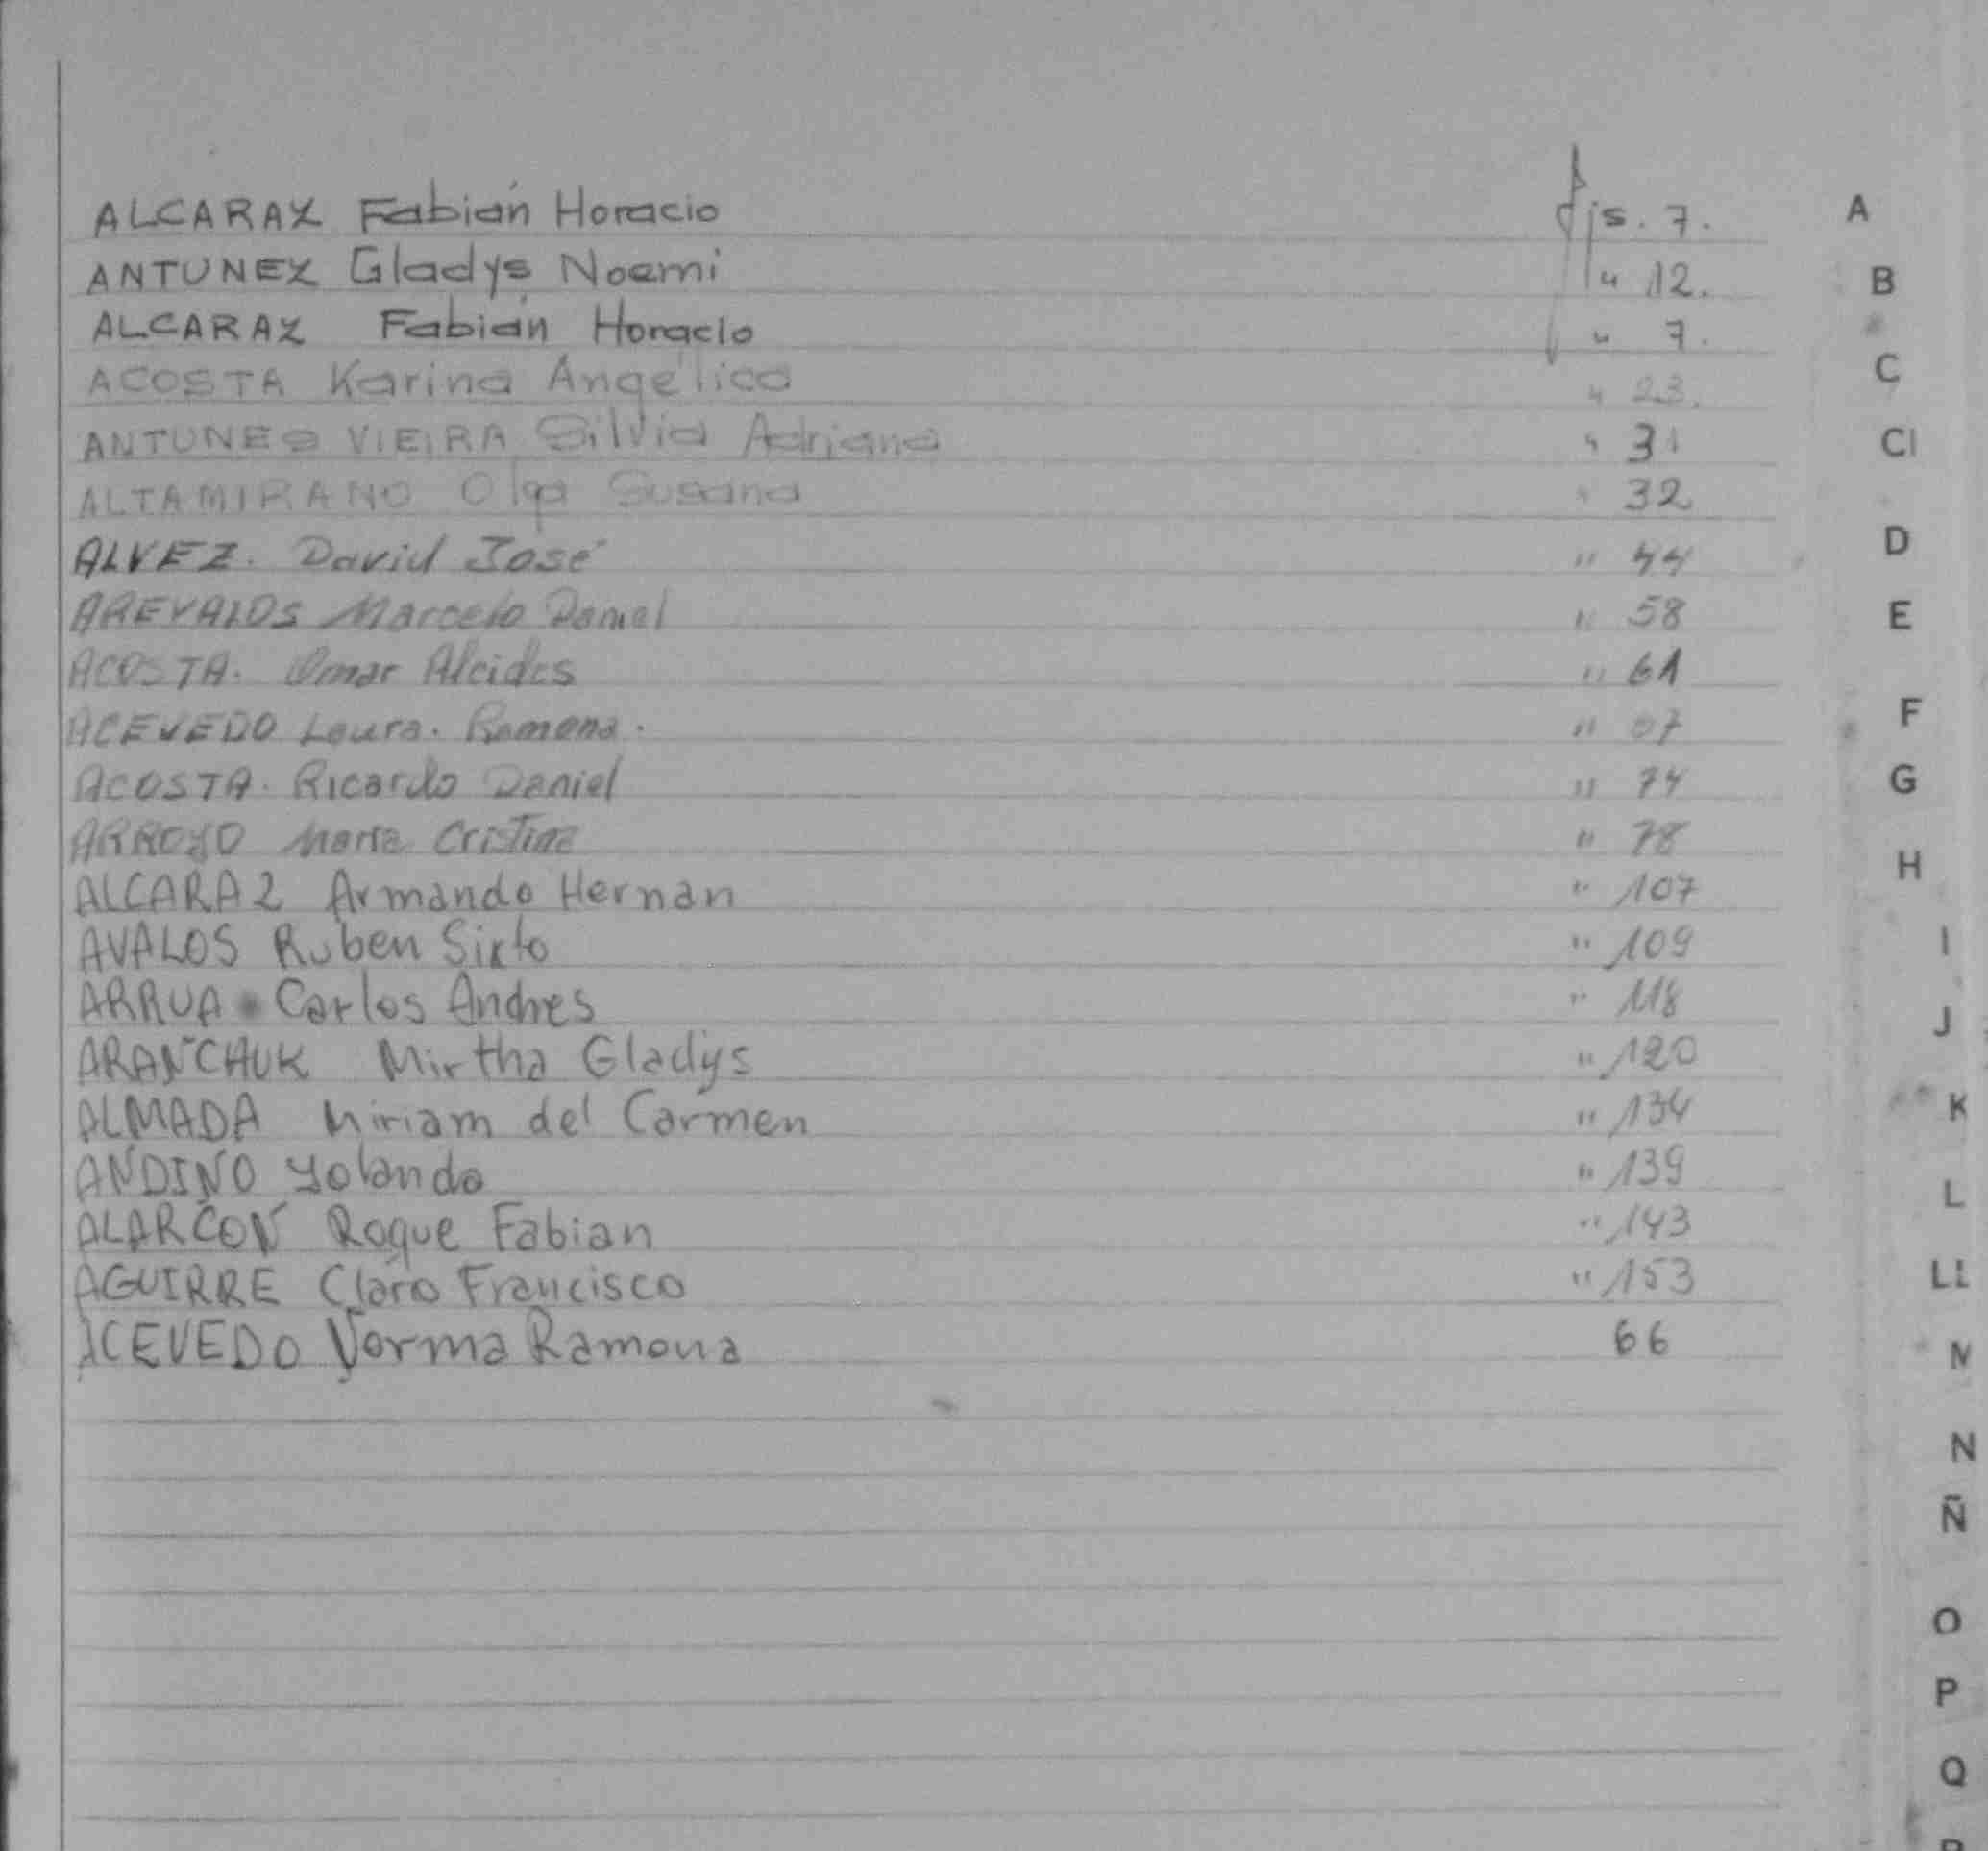 ALCARAZ Fabián Horacio fjs. 7. A
ANTUNEZ Gladys Noemi " 12. B
ALCARAZ Fabián Horacio " 7.
ACOSTA Karina Angélica " 23. C
ANTUNES VIEIRA Silvia Adriana " 31 CH
ALTAMIRANO Olga Susana " 32
ALVEZ. David José " 44 D
AREVALOS Marcelo Daniel " 58 E
ACOSTA. Omar Alcides " 61
ACEVEDO Laura. Ramona. " 07 F
ACOSTA. Ricardo Daniel " 74 G
ARROYO Maria Cristina " 78
ALCARAZ Armando Hernan " 107 H
AVALOS Ruben Sixto " 109 I
ARRUA Carlos Andres " 118 J
ARANCHUK Mirtha Gladys " 120
ALMADA Miriam del Carmen " 134 K
ANDINO Yolanda " 139 L
ALARCON Roque Fabian " 143
AGUIRRE Claro Francisco " 153 LL
ACEVEDO Norma Ramona 66 M
N
Ñ
O
P
Q